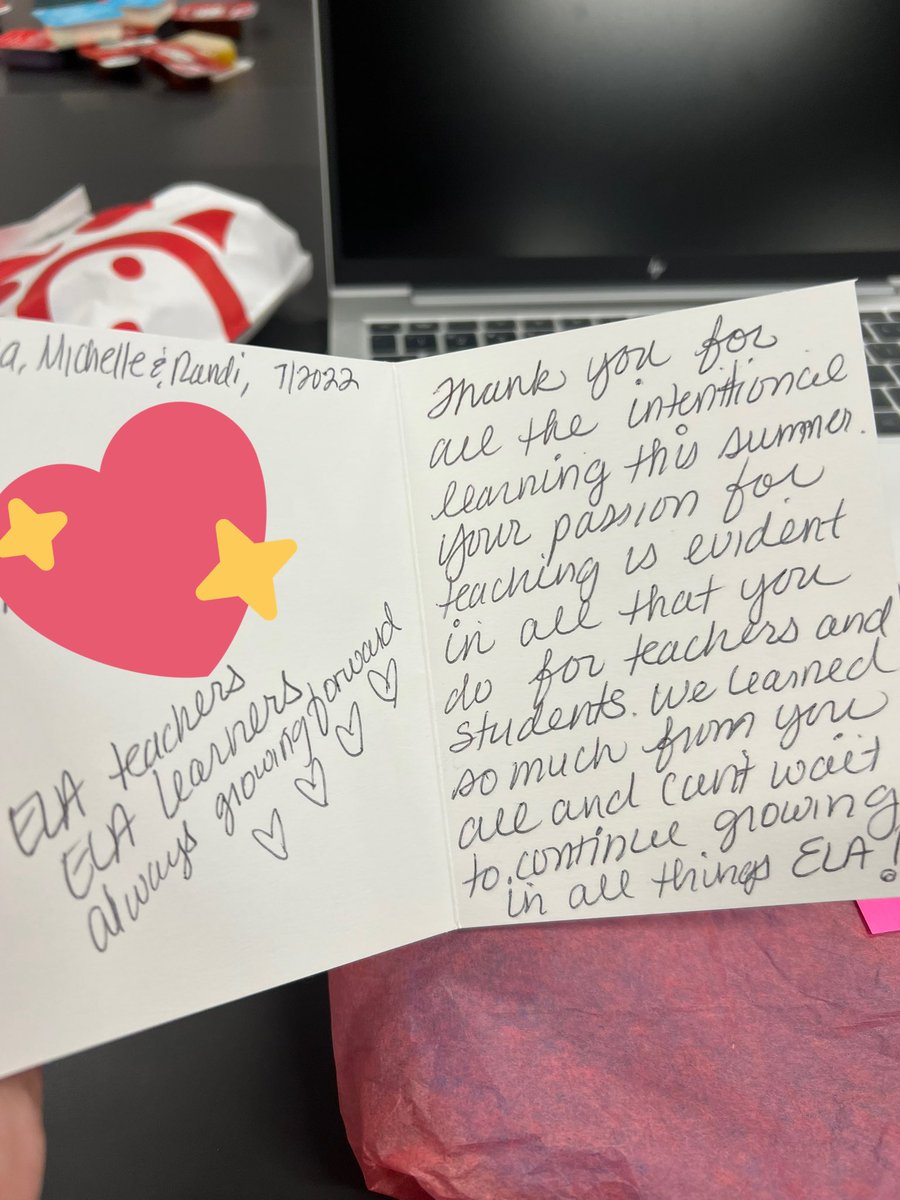 a, Michelle & Randi, 7/2022
ELA teachers
ELA Learners
always growing forward
Thank you for
all the intentional
learning this summer.
Your passion for
teaching is evident
in all that you
do for teachers and
students. We learned
so much from you
all and can't wait
to continue growing
in all things ELA!
hp